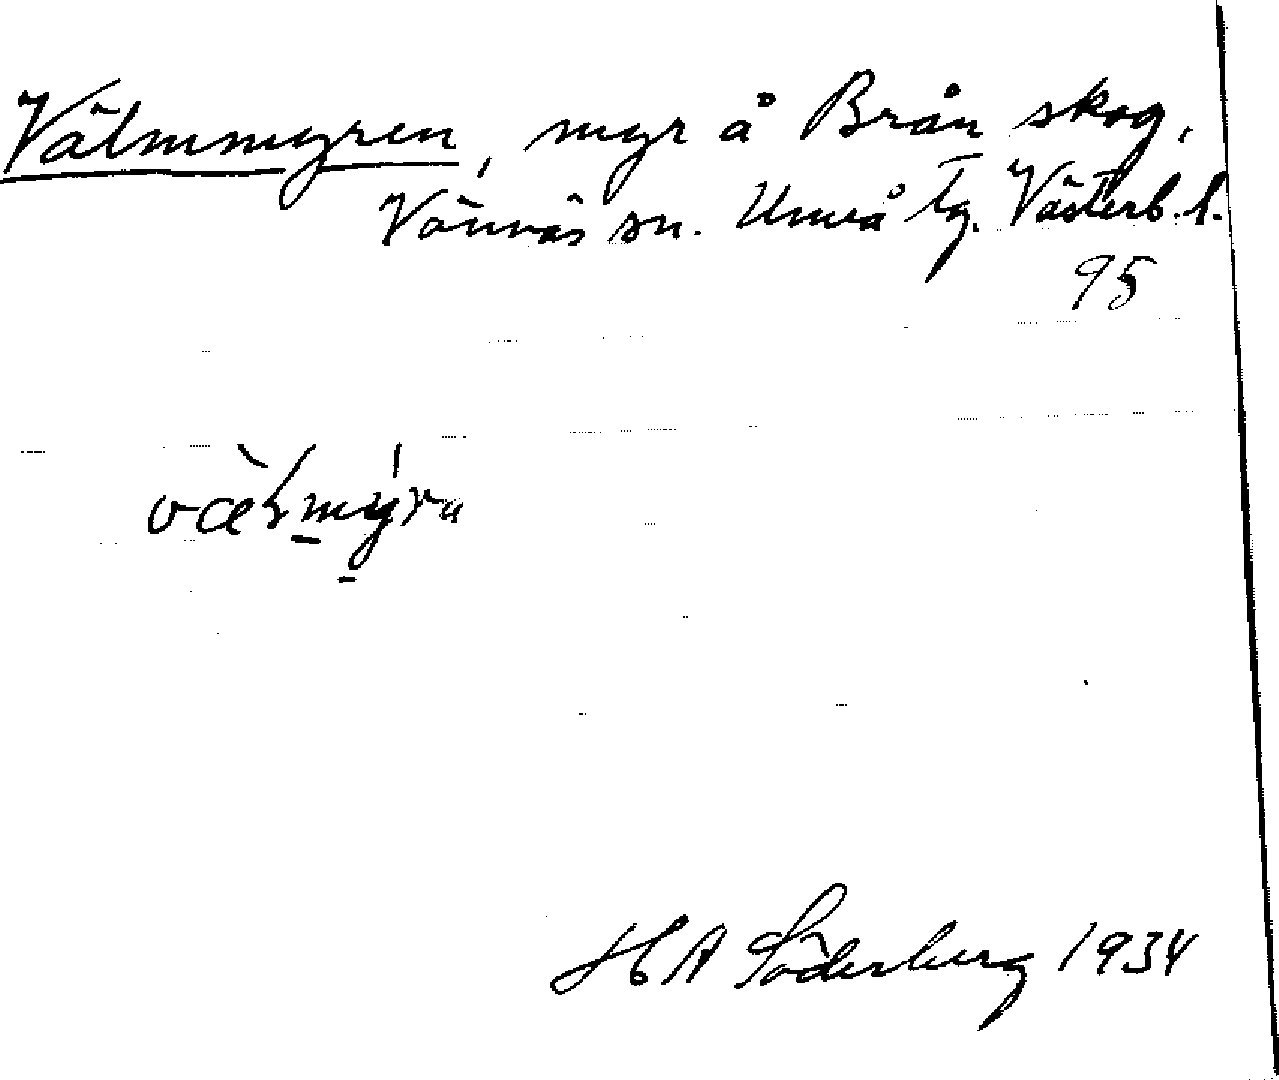 Välmmyren, myr å Brån skog,
Vännäs sn. Umeå tg. Västerb. l.
95
H A Söderberg 1934